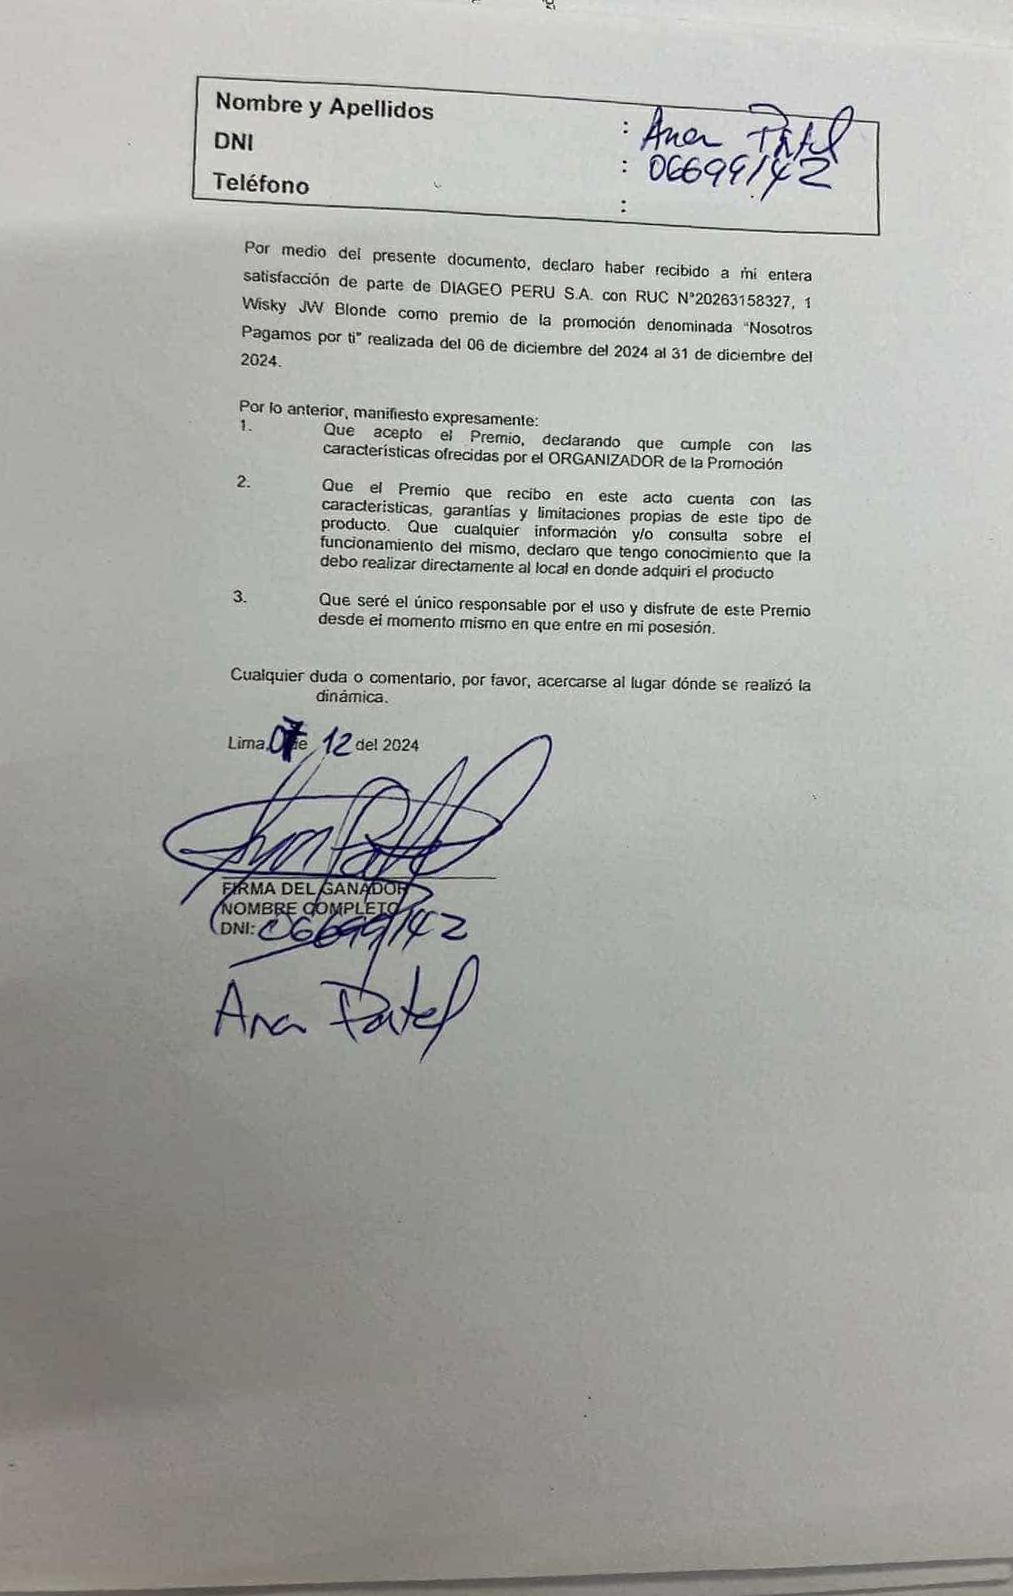 Nombre y Apellidos : Ana Patel
DNI : 06699142
Teléfono :
Por medio del presente documento, declaro haber recibido a mi entera
satisfacción de parte de DIAGEO PERU S.A. con RUC N°20263158327, 1
Wisky JW Blonde como premio de la promoción denominada "Nosotros
Pagamos por ti" realizada del 06 de diciembre del 2024 al 31 de diciembre del
2024.
Por lo anterior, manifiesto expresamente:
1. Que acepto el Premio, declarando que cumple con las
características ofrecidas por el ORGANIZADOR de la Promoción
2. Que el Premio que recibo en este acto cuenta con las
características, garantías y limitaciones propias de este tipo de
producto. Que cualquier información y/o consulta sobre el
funcionamiento del mismo, declaro que tengo conocimiento que la
debo realizar directamente al local en donde adquirí el producto
3. Que seré el único responsable por el uso y disfrute de este Premio
desde el momento mismo en que entre en mi posesión.
Cualquier duda o comentario, por favor, acercarse al lugar dónde se realizó la
dinámica.
Lima, 07 de 12 del 2024
FIRMA DEL GANADOR
NOMBRE COMPLETO
DNI: 06699142
Ana Patel